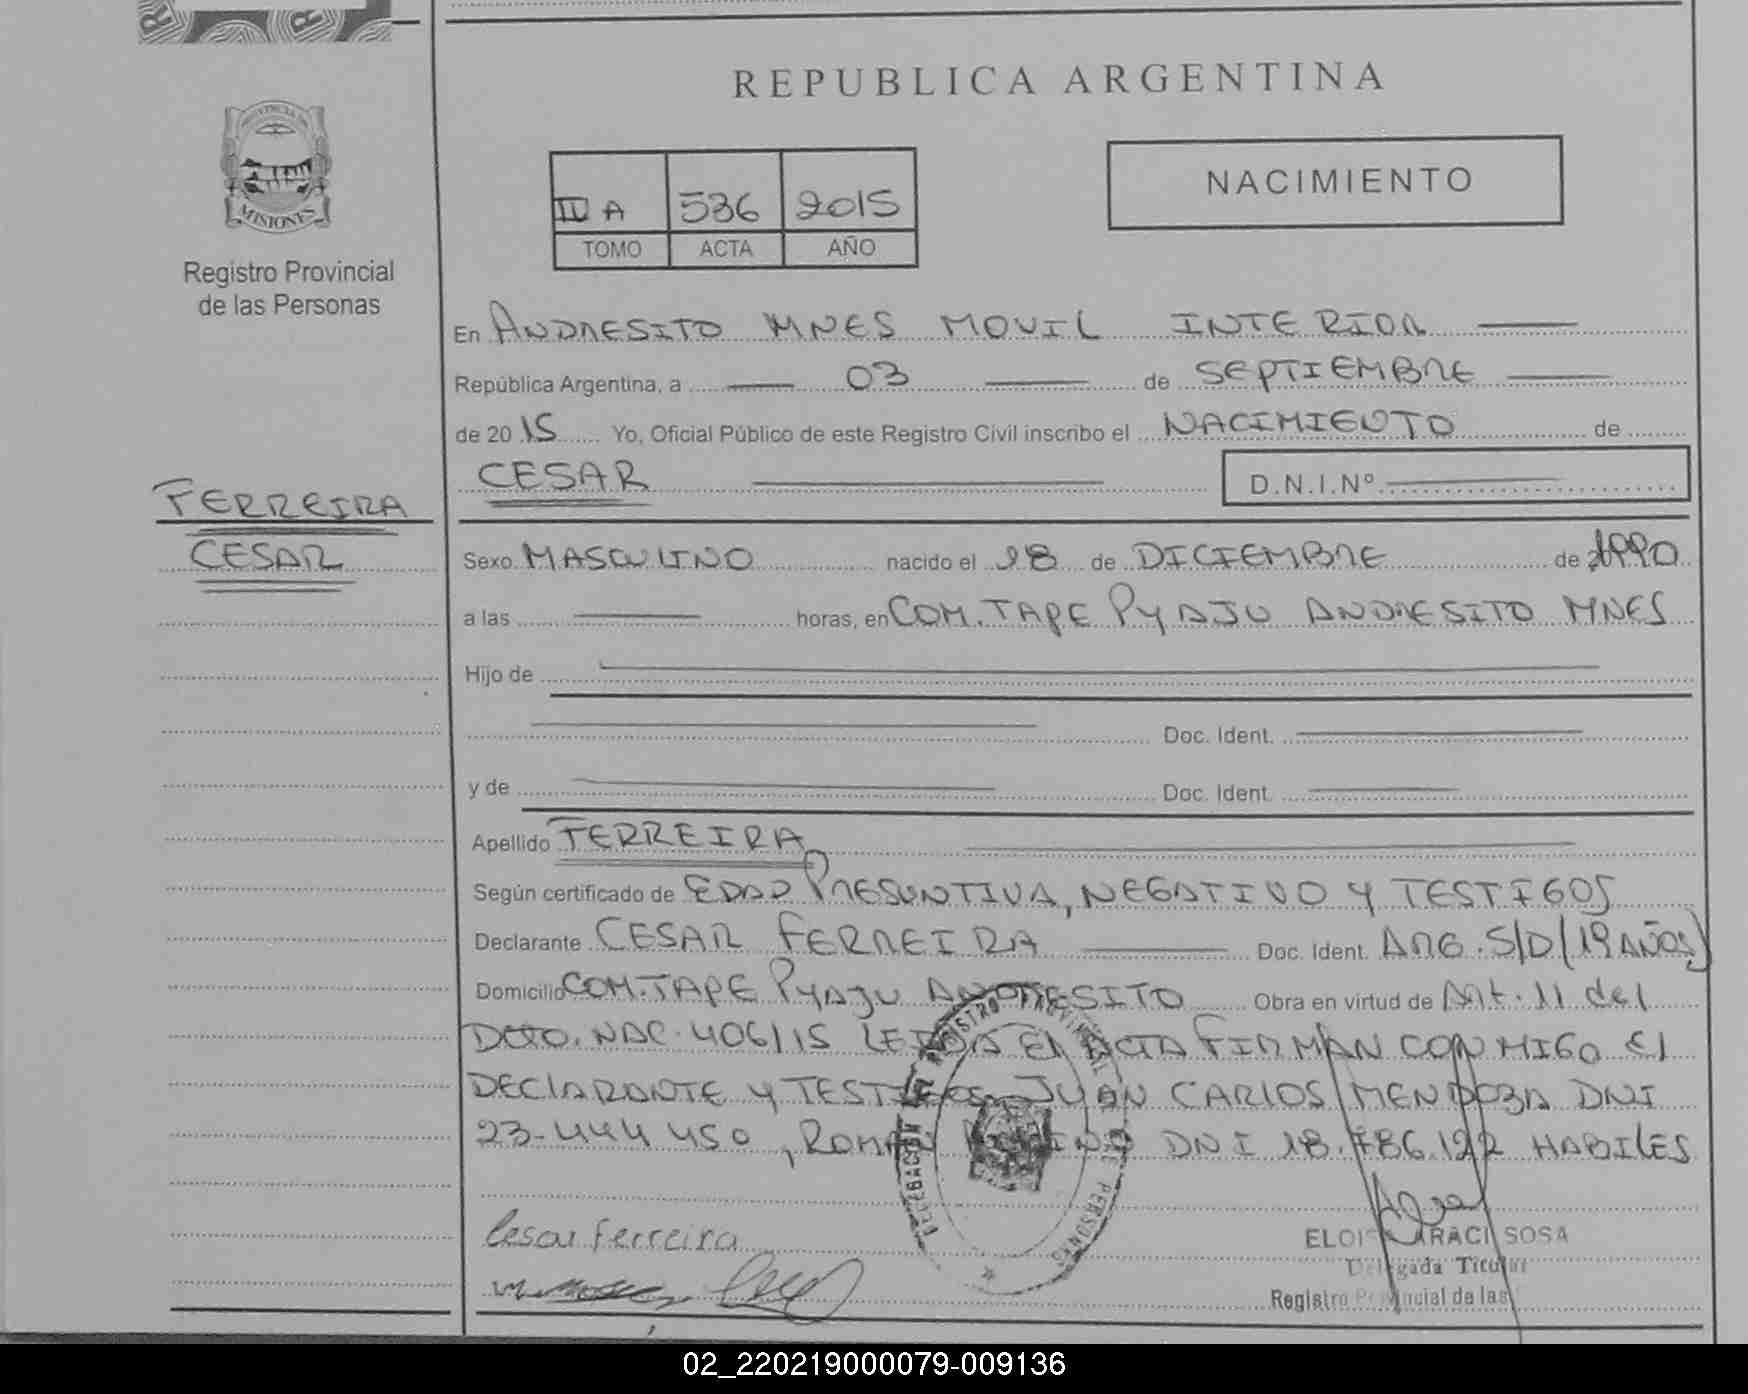 REPUBLICA ARGENTINA
PROVINCIA DE
MISIONES
Registro Provincial
de las Personas
II A 536 2015
TOMO ACTA AÑO
NACIMIENTO
En ANDRESITO MNES MOVIL INTERIOR
República Argentina, a 03 de SEPTIEMBRE
de 20 15 Yo, Oficial Público de este Registro Civil inscribo el NACIMIENTO de
CESAR D.N.I.Nº
FERREIRA
CESAR
Sexo MASCULINO nacido el 18 de DICIEMBRE de 1990
a las horas, en COM. TAPE PYAJU ANDRESITO MNES
Hijo de
Doc. Ident.
y de Doc. Ident.
Apellido FERREIRA
Según certificado de EDAD PRESUNTIVA, NEGATIVO Y TESTIGOS
Declarante CESAR FERREIRA Doc. Ident. ARG. S/D (19 AÑOS)
Domicilio COM. TAPE PYAJU ANDRESITO Obra en virtud de Art. 11 del
DCTO. NAC. 406/15 LEIDA El ACTA FIRMAN CONMIGO El
DEClARANTE Y TESTIGOS JUAN CARLOS MENDOZA DNI
23-444 450, ROMAN DNI 18.786.122 HABILES
Cesar Ferreira
ELOISA ARACI SOSA
Delegada Titular
Registro Provincial de las
DELEGACION REGISTRO PROVINCIAL DE PERSONAS
02_220219000079-009136